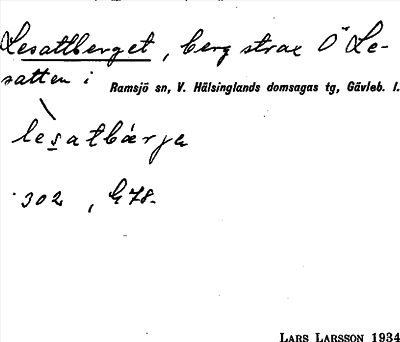 Lesattberget, berg strax Ö Le-
satten i Ramsjö sn, V. Hälsinglands domsagas tg, Gävleb. l.
lesatbärje
302, G78.
LARS LARSSON 1934